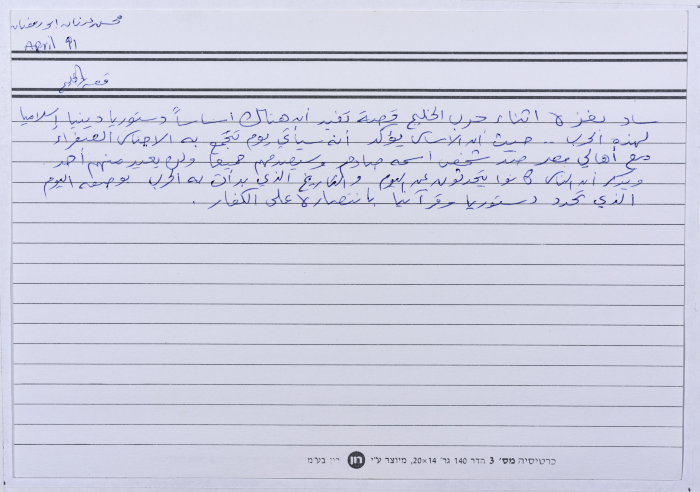 محسن فرنان ابو رمضان
April 91
قصة الخليج
ساد بغزة اثناء حرب الخليج قصة تفيد أن هناك اساساً دستوريا دينيا إسلاميا
لهذه الحرب .. حيث أن الأساس يؤكد أنه سيأتي يوم تتجمع به الاجناس الصفراء
مع أهالي مصر ضد شخص اسمه صادم وسيصدمهم جميعاً ولن يعيد منهم أحد
ويذكر أن الناس كانوا يتحدثون عن اليوم والتاريخ الذي بدأت به الحرب بوصفه اليوم
الذي تحدد دستوريا وقرآنيا بانتصاره على الكفار .
כרטיסיה מס' 3 הדר 140 גר' 14×20, מיוצר ע"י רון רון בע"מ